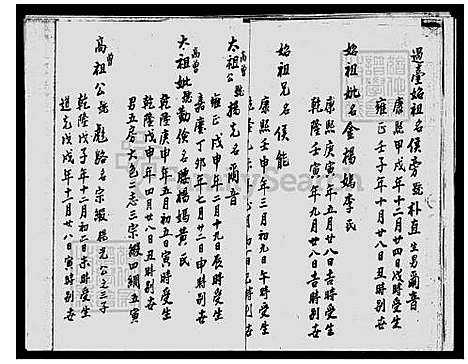 過臺始祖名侯旁號朴直生男爾音
康熙甲戌年十二月廿四日戌時受生
雍正壬子年十月廿八日丑時別世
始祖妣名金楊媽李氏
康熙庚寅年五月廿八日吉時受生
乾隆壬寅年九月廿八日吉時別世
始祖兄名侯能
康熙壬申年三月初九日午時受生
高曾
太祖公號揚光名爾音
雍正戊申年二月十九日辰時受生
嘉慶丁卯年七月廿二日申時別世
高曾
太祖妣號勤儉名腰楊媽黃氏
乾隆庚申年五月初五寅時受生
乾隆戊申年四月廿八日丑時別世
男五房大色二志三宗綴四續五寅
曾
高祖公號彪路名宗綴揚光公之三子
乾隆戊子年十二月初二日未時受生
道光戊戌年十二月廿八日寅時別世
FamilySearch